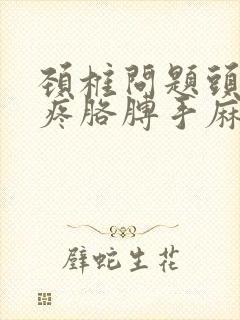 頚椎問題頭
疼胳膊手麻
壁蛇生花